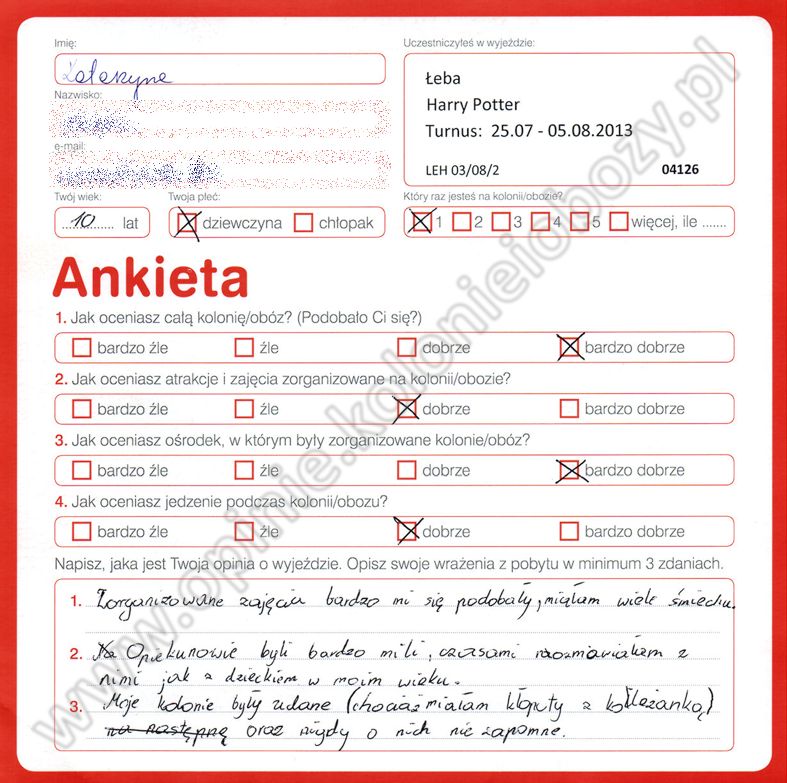 Imię:
Uczestniczyłeś w wyjeździe:
Katarzyna
Łeba
Harry Potter
Turnus: 25.07 - 05.08.2013
LEH 03/08/2 04126
Nazwisko:
e-mail:
Twój wiek: Twoja płeć: Który raz jesteś na kolonii/obozie?
10 lat dziewczyna chłopak 1 2 3 4 5 więcej, ile .......
Ankieta
1. Jak oceniasz całą kolonię/obóz? (Podobało Ci się?)
bardzo źle źle dobrze bardzo dobrze
2. Jak oceniasz atrakcje i zajęcia zorganizowane na kolonii/obozie?
bardzo źle źle dobrze bardzo dobrze
3. Jak oceniasz ośrodek, w którym były zorganizowane kolonie/obóz?
bardzo źle źle dobrze bardzo dobrze
4. Jak oceniasz jedzenie podczas kolonii/obozu?
bardzo źle źle dobrze bardzo dobrze
Napisz, jaka jest Twoja opinia o wyjeździe. Opisz swoje wrażenia z pobytu w minimum 3 zdaniach.
1. Zorganizowane zajęcia bardzo mi się podobały, miałam wiele śmiechu.
2. Opiekunowie byli bardzo mili, czasami rozmawiałam z
nimi jak z dzieckiem w moim wieku.
3. Moje kolonie były udane (chociaż miałam kłopoty z koleżanką)
na następną oraz nigdy o nich nie zapomnę.
www.opinie.kolonieiobozy.pl